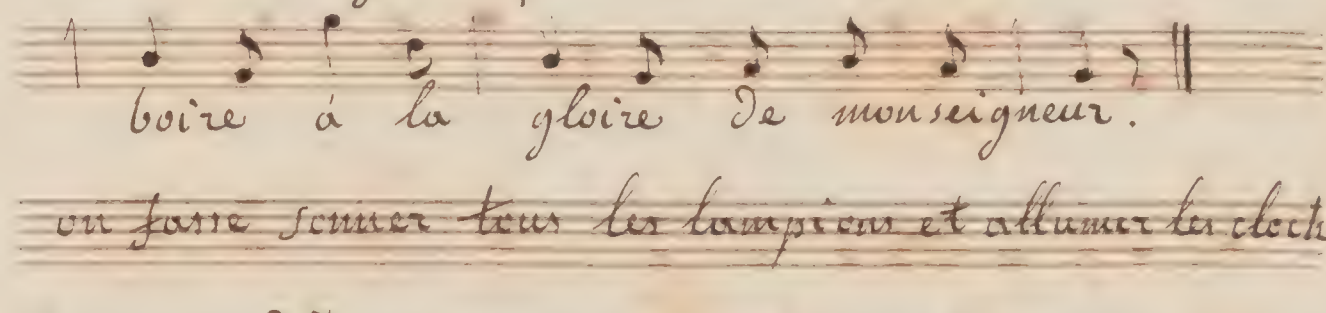 boire á la gloire de monseigneur.
on fasse sonner tous les lampions et allumer les cloch